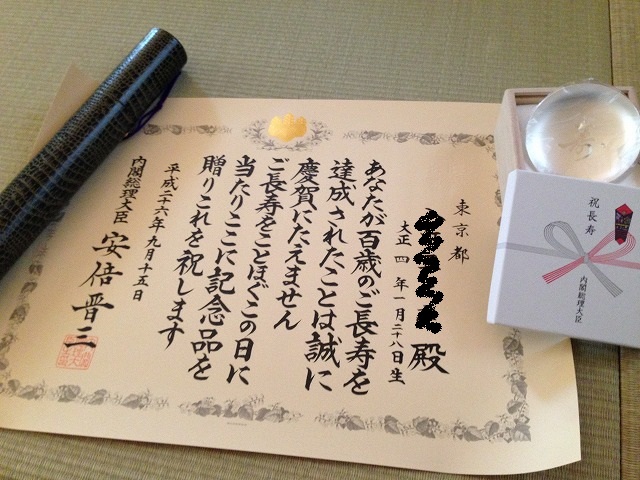 東京都
殿
大正四年一月二十八日生
あなたが百歳のご長寿を
達成されたことは誠に
慶賀にたえません
ご長寿をことほぐこの日に
当たりここに記念品を
贈りこれを祝します
平成二十六年九月十五日
内閣総理大臣 安倍晋三
祝長寿
内閣総理大臣
寿